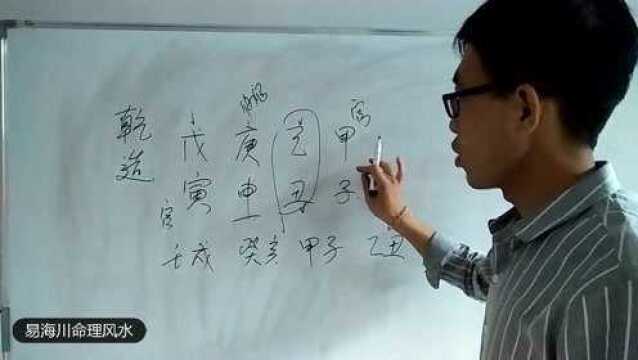 官
乾造 戊 庚 己 甲
寅 申 丑 子
官
壬戌 癸亥 甲子 乙丑
易海川命理风水